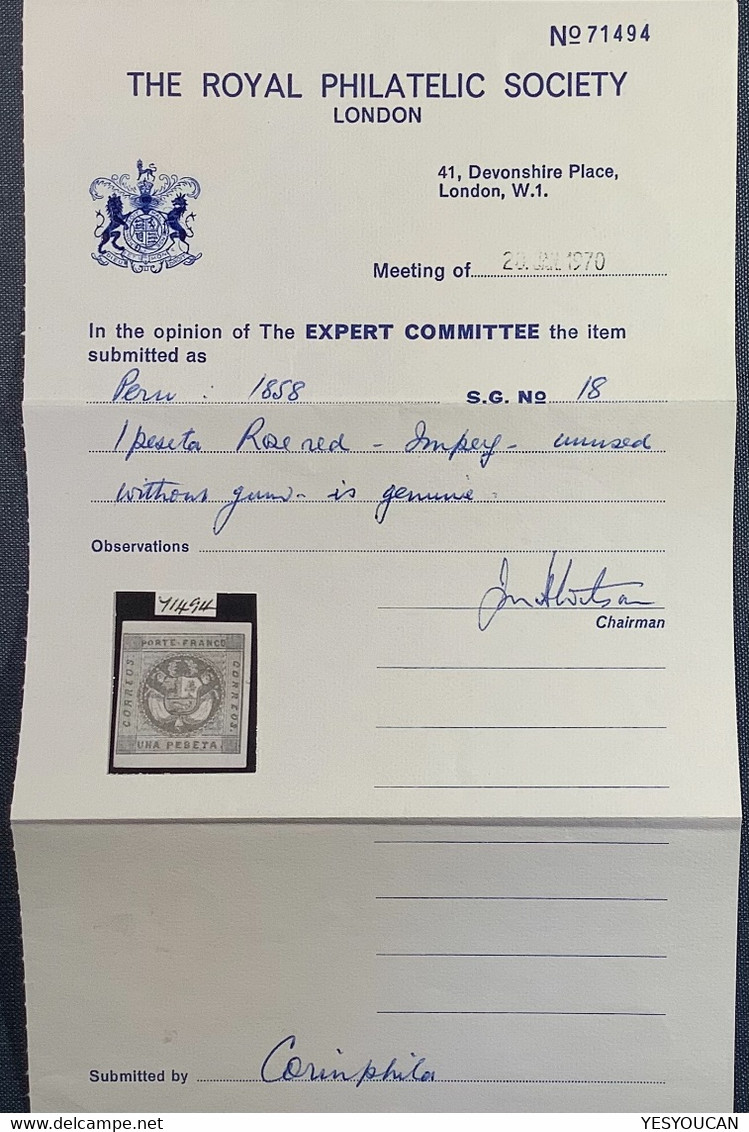 No 71494
THE ROYAL PHILATELIC SOCIETY
LONDON
41, Devonshire Place,
London, W.1.
Meeting of 20. 1970
In the opinion of The EXPERT COMMITTEE the item
submitted as
Peru : 1858 S.G. No 18
1 peseta Rose red - Imperf - unused
without gum - is genuine.
Observations
71494
PORTE FRANCO
CORREOS.
CORREOS.
UNA PESETA.
Chairman
Submitted by Corinphila
YESYOUCAN